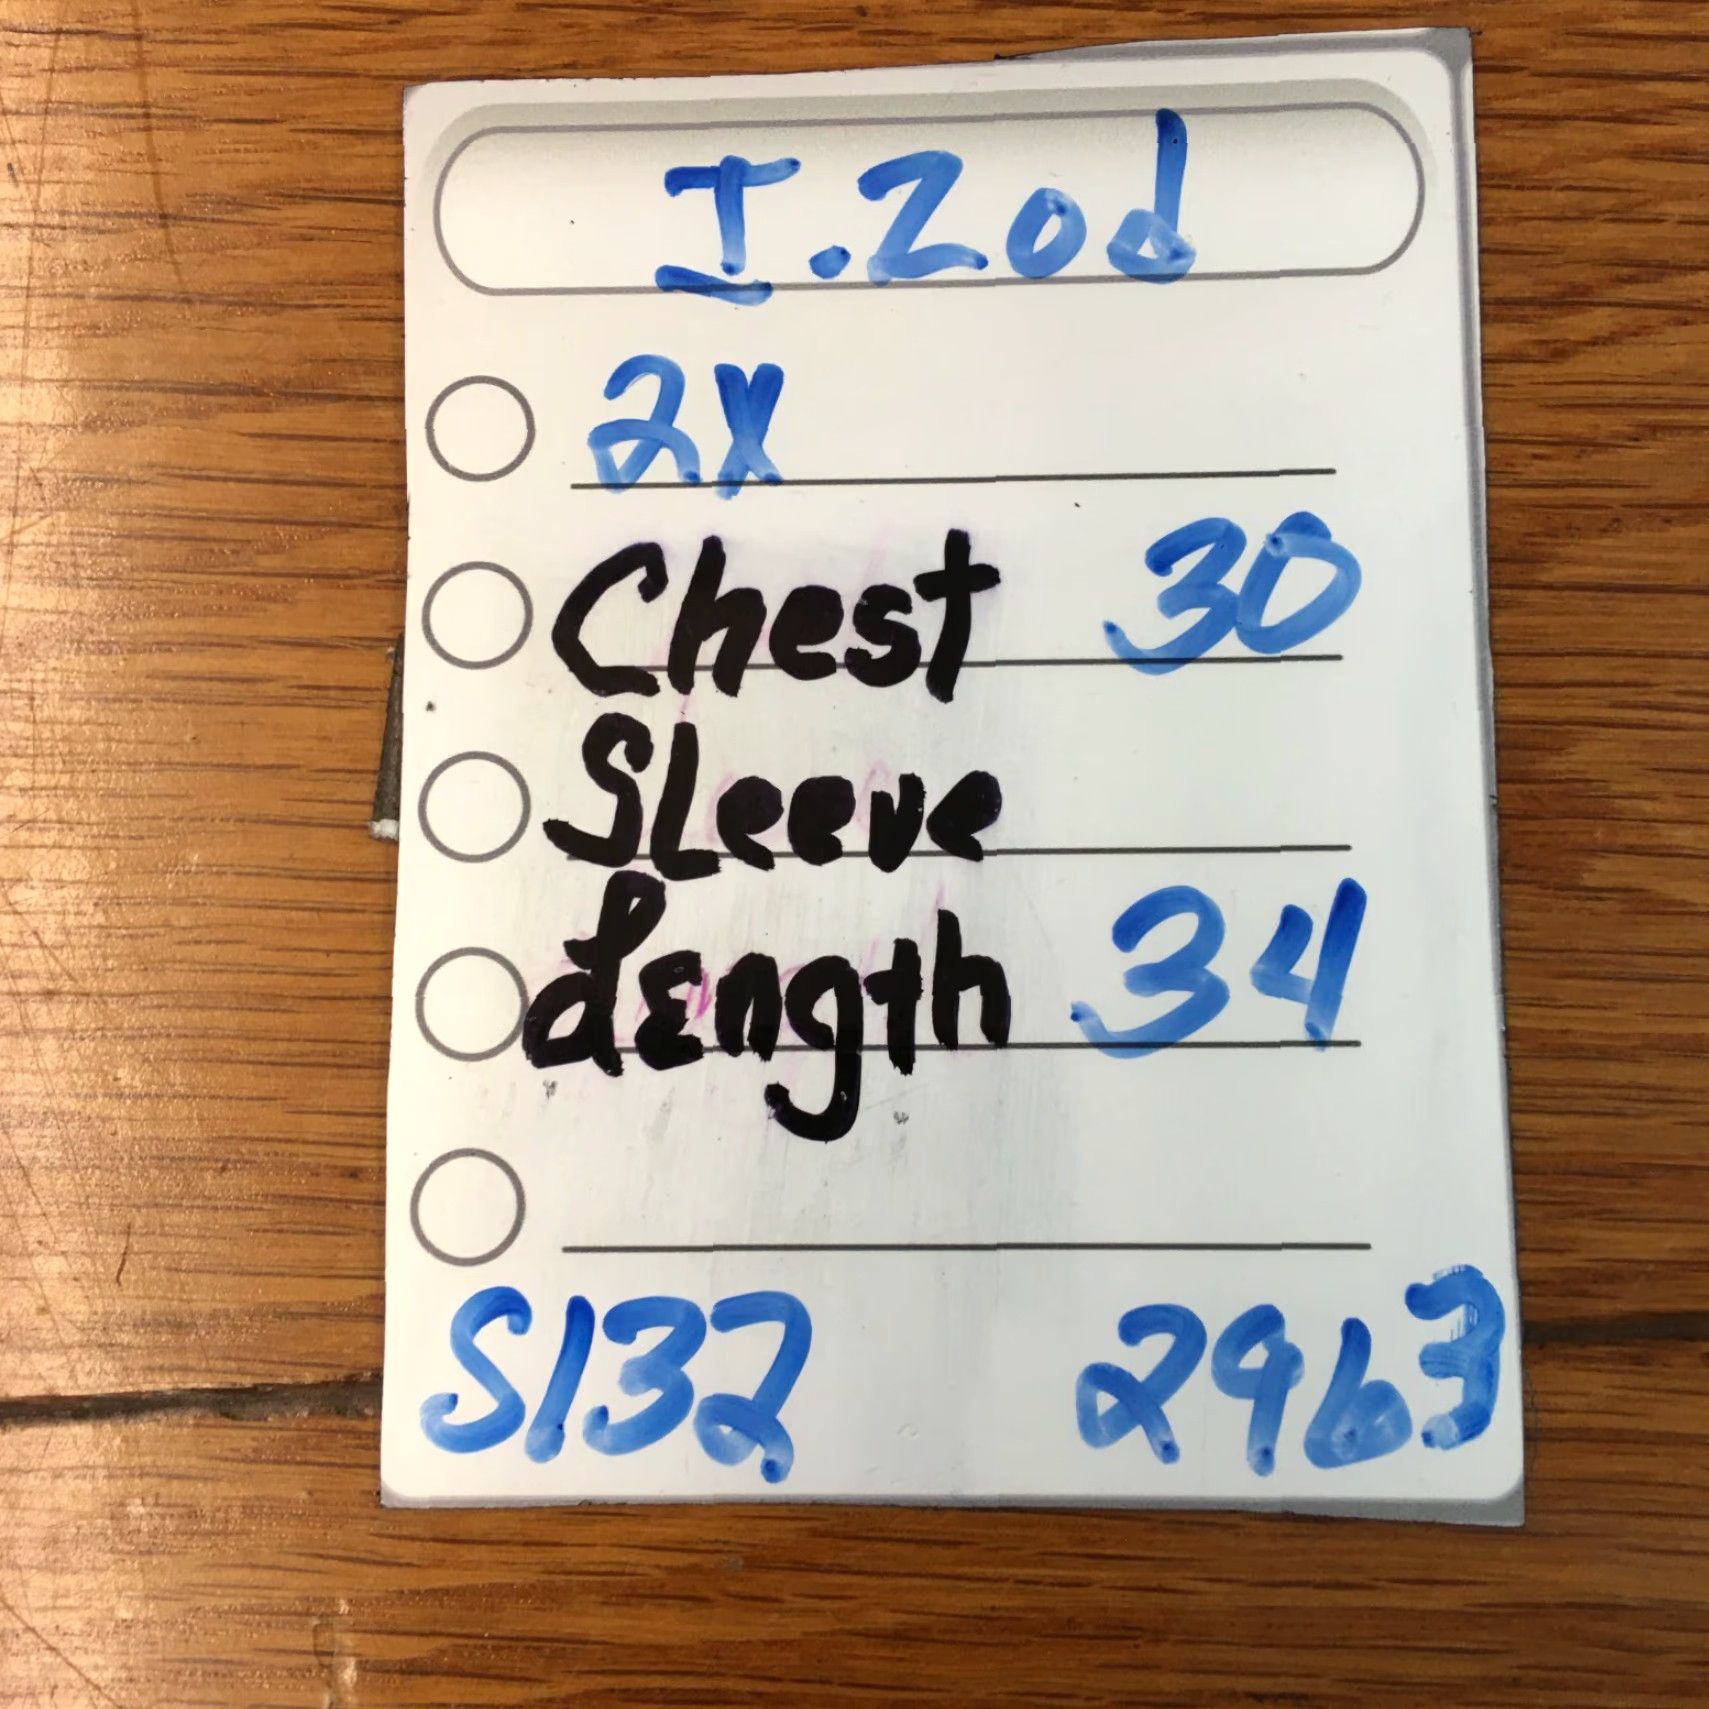 I.Zod
2X
Chest 30
SLeeve
Length 34
S132 2963